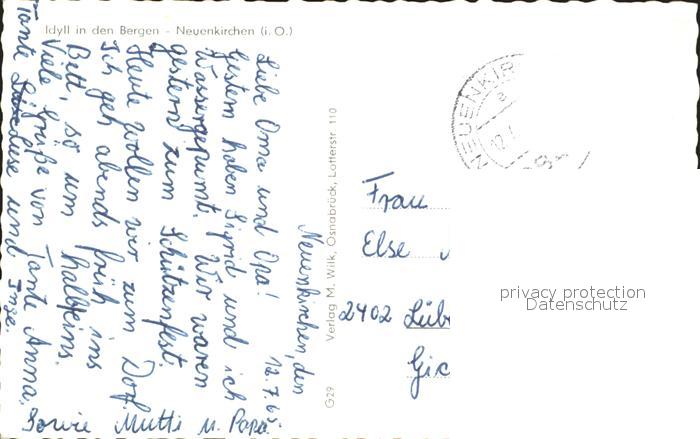 Idyll in den Bergen - Neuenkirchen (i. O.)
Neuenkirchen, den
12.7.65.
Liebe Oma und Opa!
Gestern haben Sigrid und ich
Wasser gepumt. Wir waren
gestern zum Schützenfest.
Heute wollen wir zum Dorf.
Ich geh abends früh ins
Bett, so um halbeins.
Viele Grüße von Tante Anna,
Tante und Inge.
Sowie Mutti u. Papa.
G29 Verlag M. Wilk, Osnabrück, Lotterstr 110
NEUENKIR
12.
Frau
Else
2402 Lüb
Gic
privacy protection
Datenschutz